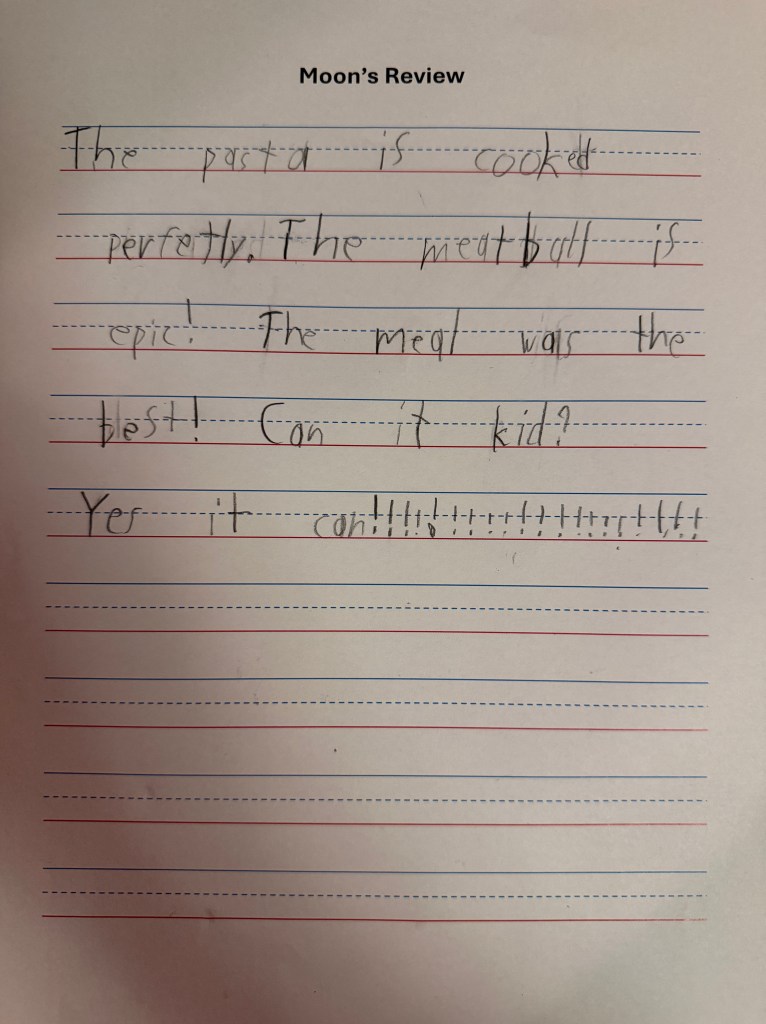 Moon's Review
The pasta is cooked
perfectly. The meatball is
epic! The meal was the
best! Can it kid?
Yes it can!!!!!!!!!!!!!!!!!!!!